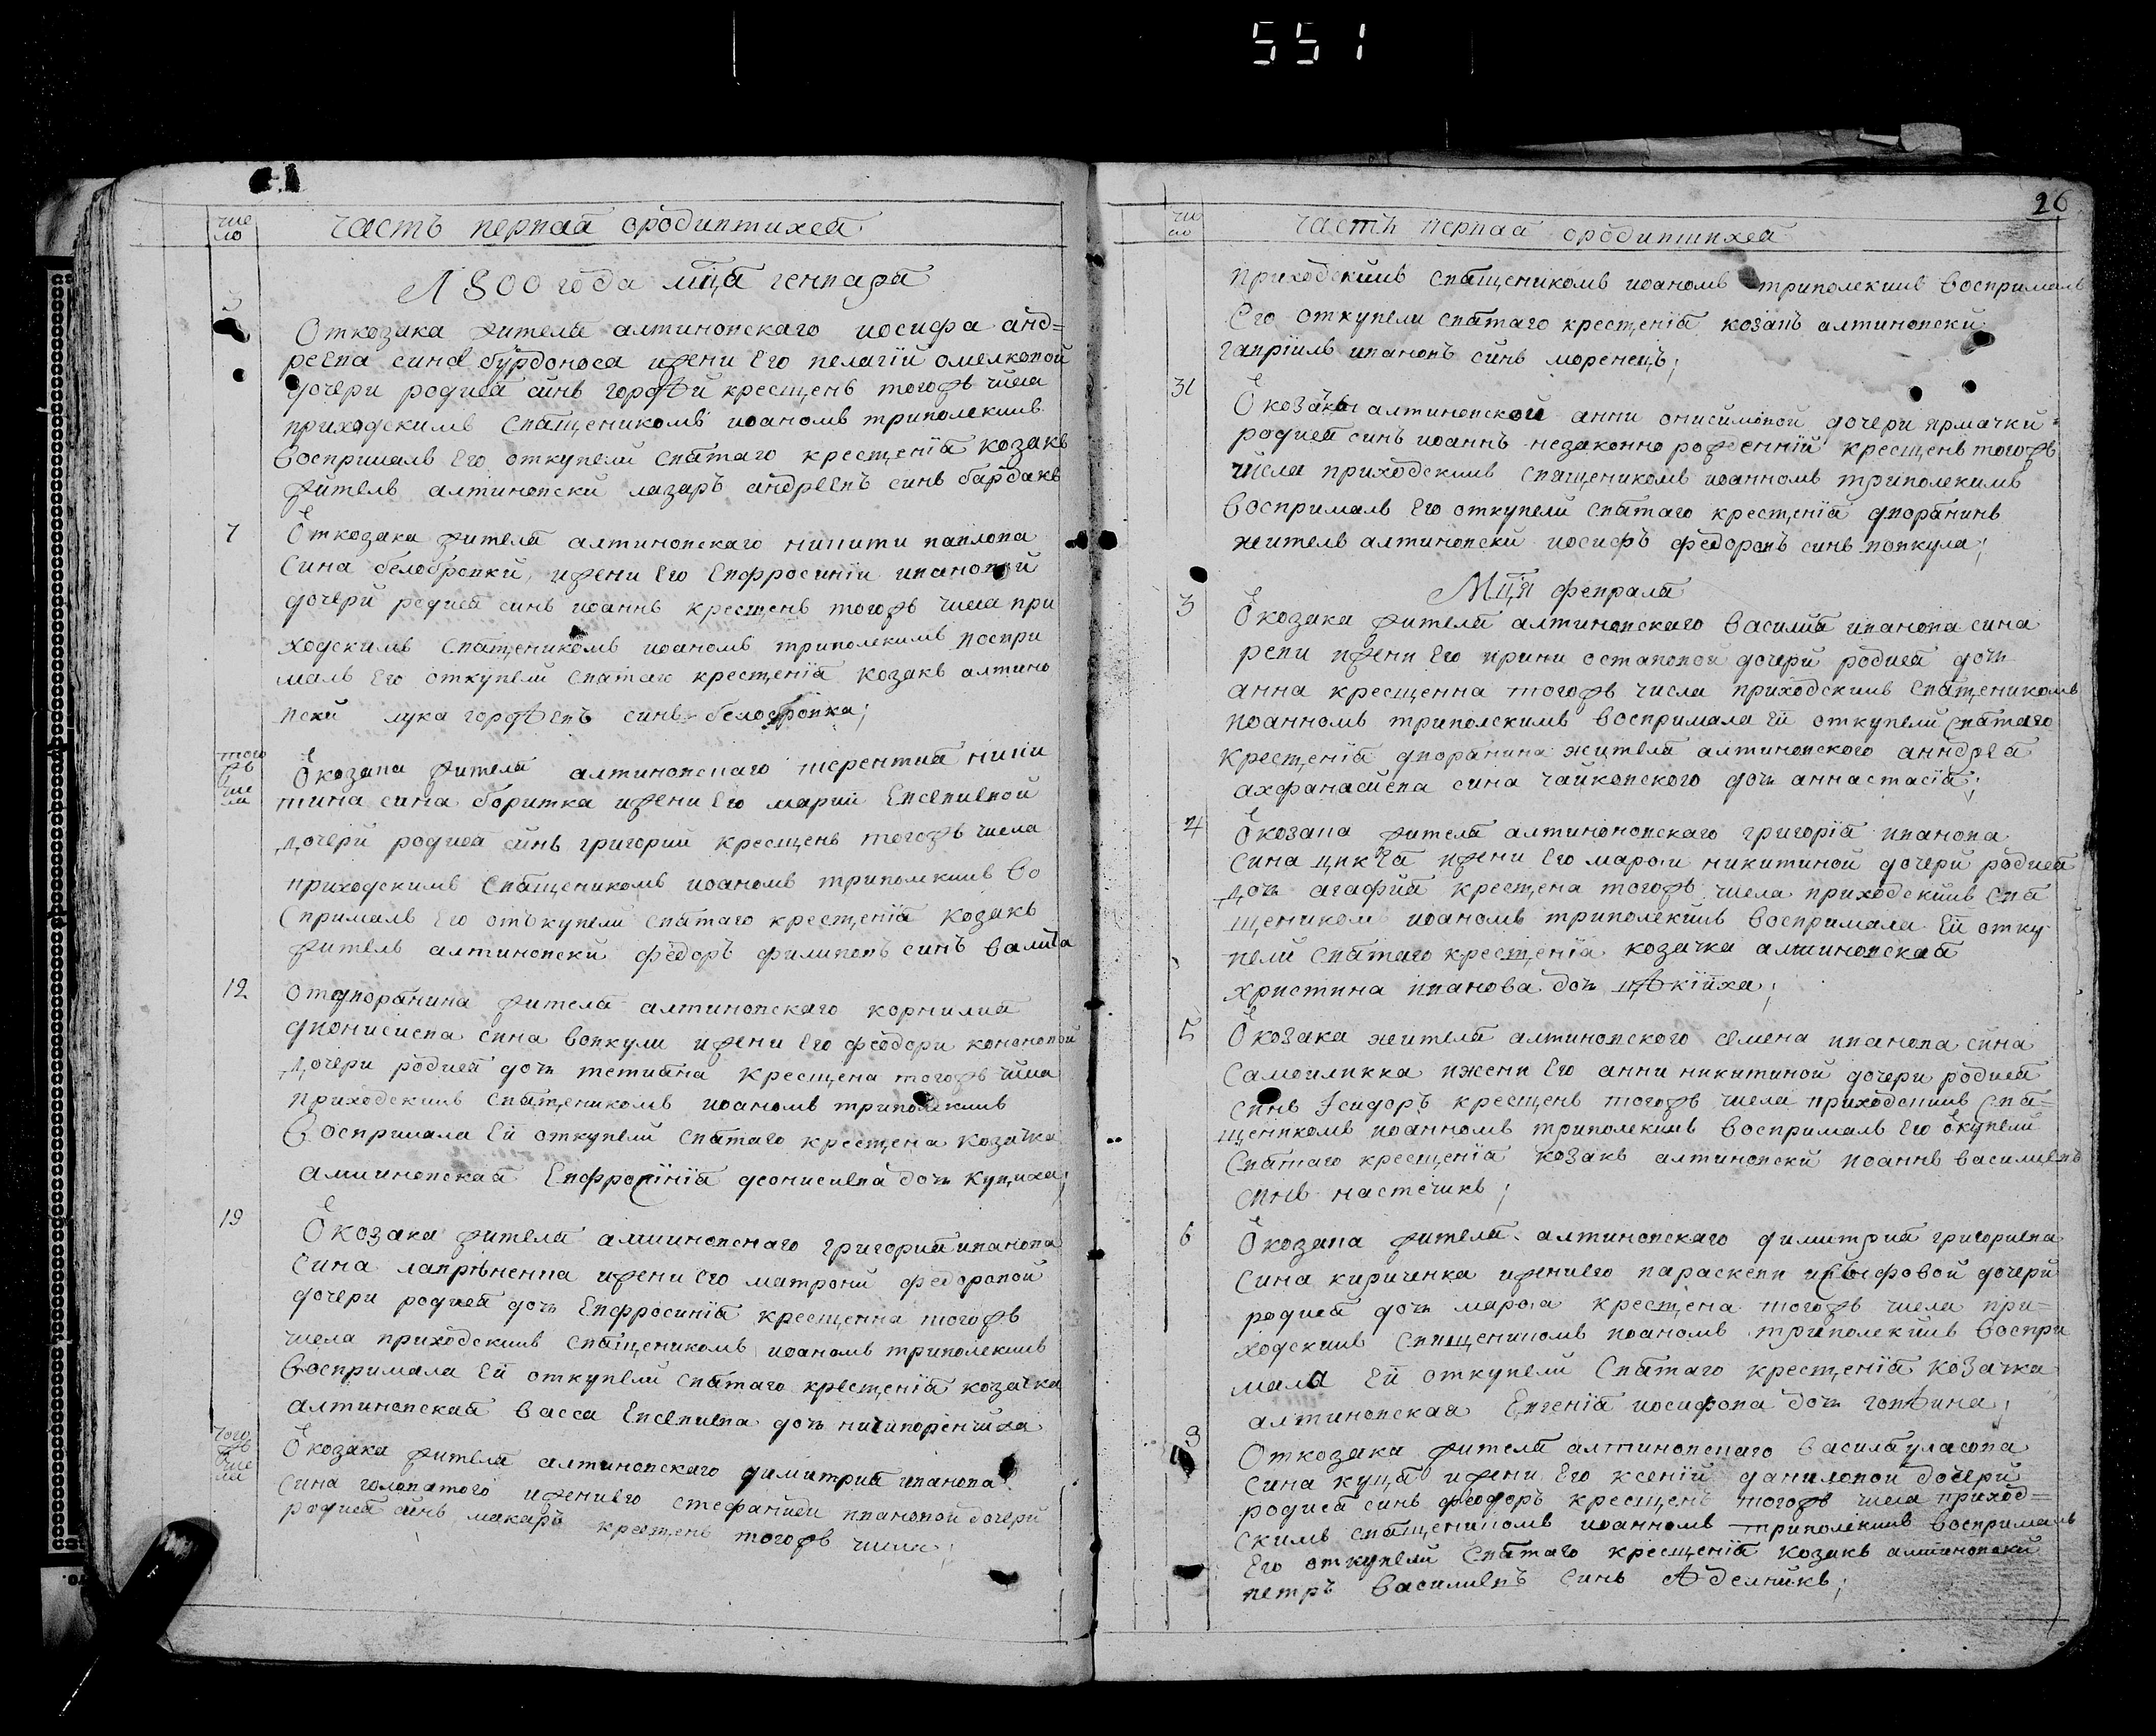 551
26
число
часть первая ородившихся
1800 года мца генваря
От козака жителя алтиновскаго иосифа анд=
реева сина бурдоноса ижени Его пелагій омелковой
дочери родися синь гордѣй крещень тогожь числа
приходскимь священикомь иоаномь триполскимь
воспрималь Его откупели святаго крещенія козакь
житель алтиновски лазаръ андреевъ синь бардакь
7
Откозака жителя алтиновскаго никити павлова
сина белобровки, ижени Его Евфросиніи ивановой
дочери родися синь иоаннь крещень тогожь числа при
ходскимь священикомь иоаномь триполскимь воспри
маль Его откупели святаго крещенія козакь алтино
вски лука гордѣевъ синь белобровка;
того
жь
чис
ла
Ѿ козака жителя алтиновскаго терентия ники
тина сина боритка ижени Его марии Евсевиевой
дочери родися синь григорий крещень тогожь числа
приходскимь священикомь иоаномь триполскимь во
спрималь Его отъкупели святаго крещенія козакь
житель алтиновски федоръ филиповъ синъ
12
отдворянина жителя алтиновскаго корнилия
дионисиева сина вовкули ижени Его феодори кононовой
дочери родися дочь тетиана крещена тогожь числа
приходскимь священикомь иоаномь триполскимь
воспримала Ей откупели святаго крещена козачка
алтиновская Евфросінія деонисиева дочь куциха;
19
Ѿ козака жителя алтиновскаго григория иванова
сина лаврѣненка ижени Его матрони федоровой
дочери родися дочь Евфросинія крещенна тогожь
числа приходскимь священикомь иоаномь триполскимь
воспримала Ей откупели святаго крещенія козачка
алтиновская васса Евсевиева дочь ничипоренчиха
того
жь
чис
ла
Ѿ козака жителя алтиновскаго димитрия иванова
сина головатого иженилго стефаниди ивановой дочери
родися синь макарь крещень тогожь числа;
число
часть первая ородившихся
приходскимь священикомь иоаномь триполскимь воспрималь
Его откупели святаго крещенія козакь алтиновски
гавріиль ивановъ синь моренецъ;
31
Ѿ козачки алтиновской анни онисимовой дочери ярмачки
родися синъ иоаннъ незаконно рожденнїй крещень тогожь
числа приходскимь священикомь иоанномь триполскимь
воспрималь Его откупели святаго крещенїй дворянинь
житель алтиновски иосифъ федоровъ синь вовкула;
Мця февраля
3
Ѿ козака жителя алтиновскаго василия иванова сина
репи ижени Его ирини остаповой дочери родися дочь
анна крещенна тогожь числа приходскимь священикомь
иоанномь триполскимь воспримала Ей откупели святаго
крещенія дворянина жителя алтиновского анндрея
ахфанасиева сина чайковского дочь аннастасія;
4
Ѿ козака жителя алтинововскаго григорія иванова
сина цикѣя ижени Его марфи никитиной дочери родися
дочь агафия крещена тогожь числа приходскимь свя
щеником иоаномь триполскимь воспримала Ей отку
пели святаго крещенія козачка алтиновская
христина иванова дочь цѣкїиха;
5
Ѿ козака жителя алтиновского семена иванова сина
самоиликка ижени Его анни никитиной дочери родися
синь Ісидоръ крещень тогожь числа приходскимь свя=
щеникомь иоанномь триполскимь воспрималь Его ѿкупели
святаго крещенія козакь алтиновски иоаннь василиевъ
синь настечикь;
6
Ѿ козака жителя алтиновскаго димитрия григориева
сина кириченка иженилго параскеви иосифовой дочери
родися дочь марфа крещена тогожь числа при=
ходскимь священикомь иоаномь триполскимь воспри
мала Ей откупели святаго крещенія козачка
алтиновская Евгенія иосифова дочь говѣина;
Откозака жителя алтиновскаго василя уласова
сина куця ижени Его ксеній даниловой дочери
родися синь феодоръ крещень тогожь числа приход=
скимь священикомь иоанномь триполскимь воспрималь
Его откупели святаго крещенія козакь алтиновски
петръ василиевъ синь ѣделникь;